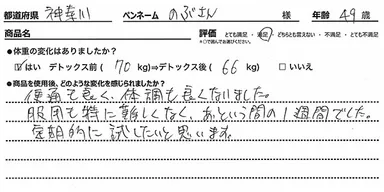 都道府県 神奈川 ペンネーム のぶさん 様 年齢 49 歳
商品名 評価 とても満足 ・ 満足 ・ どちらとも言えない ・ 不満足 ・ とても不満
○で選んでお選びください。
●体重の変化はありましたか?
☑はい デトックス前( 70 kg)⇒デトックス後( 66 kg) □いいえ
●商品を使用後、どのような変化を感じられましたか?
便通も良く、体調も良くなりました。
服用も特に難しくなく、あという間の1週間でした。
定期的に試したいと思います。